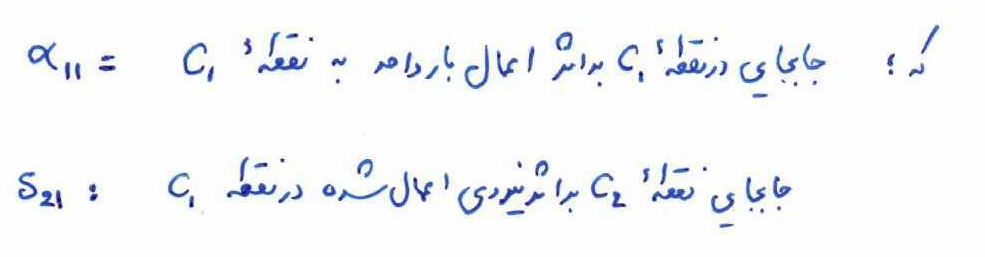 که ؛ جابجایی در نقطهٔ C₁ بر اثر اعمال بار واحد به نقطهٔ C₁ = α₁₁
جابجایی نقطهٔ C₂ بر اثر نیروی اعمال شده در نقطه C₁ : S₂₁